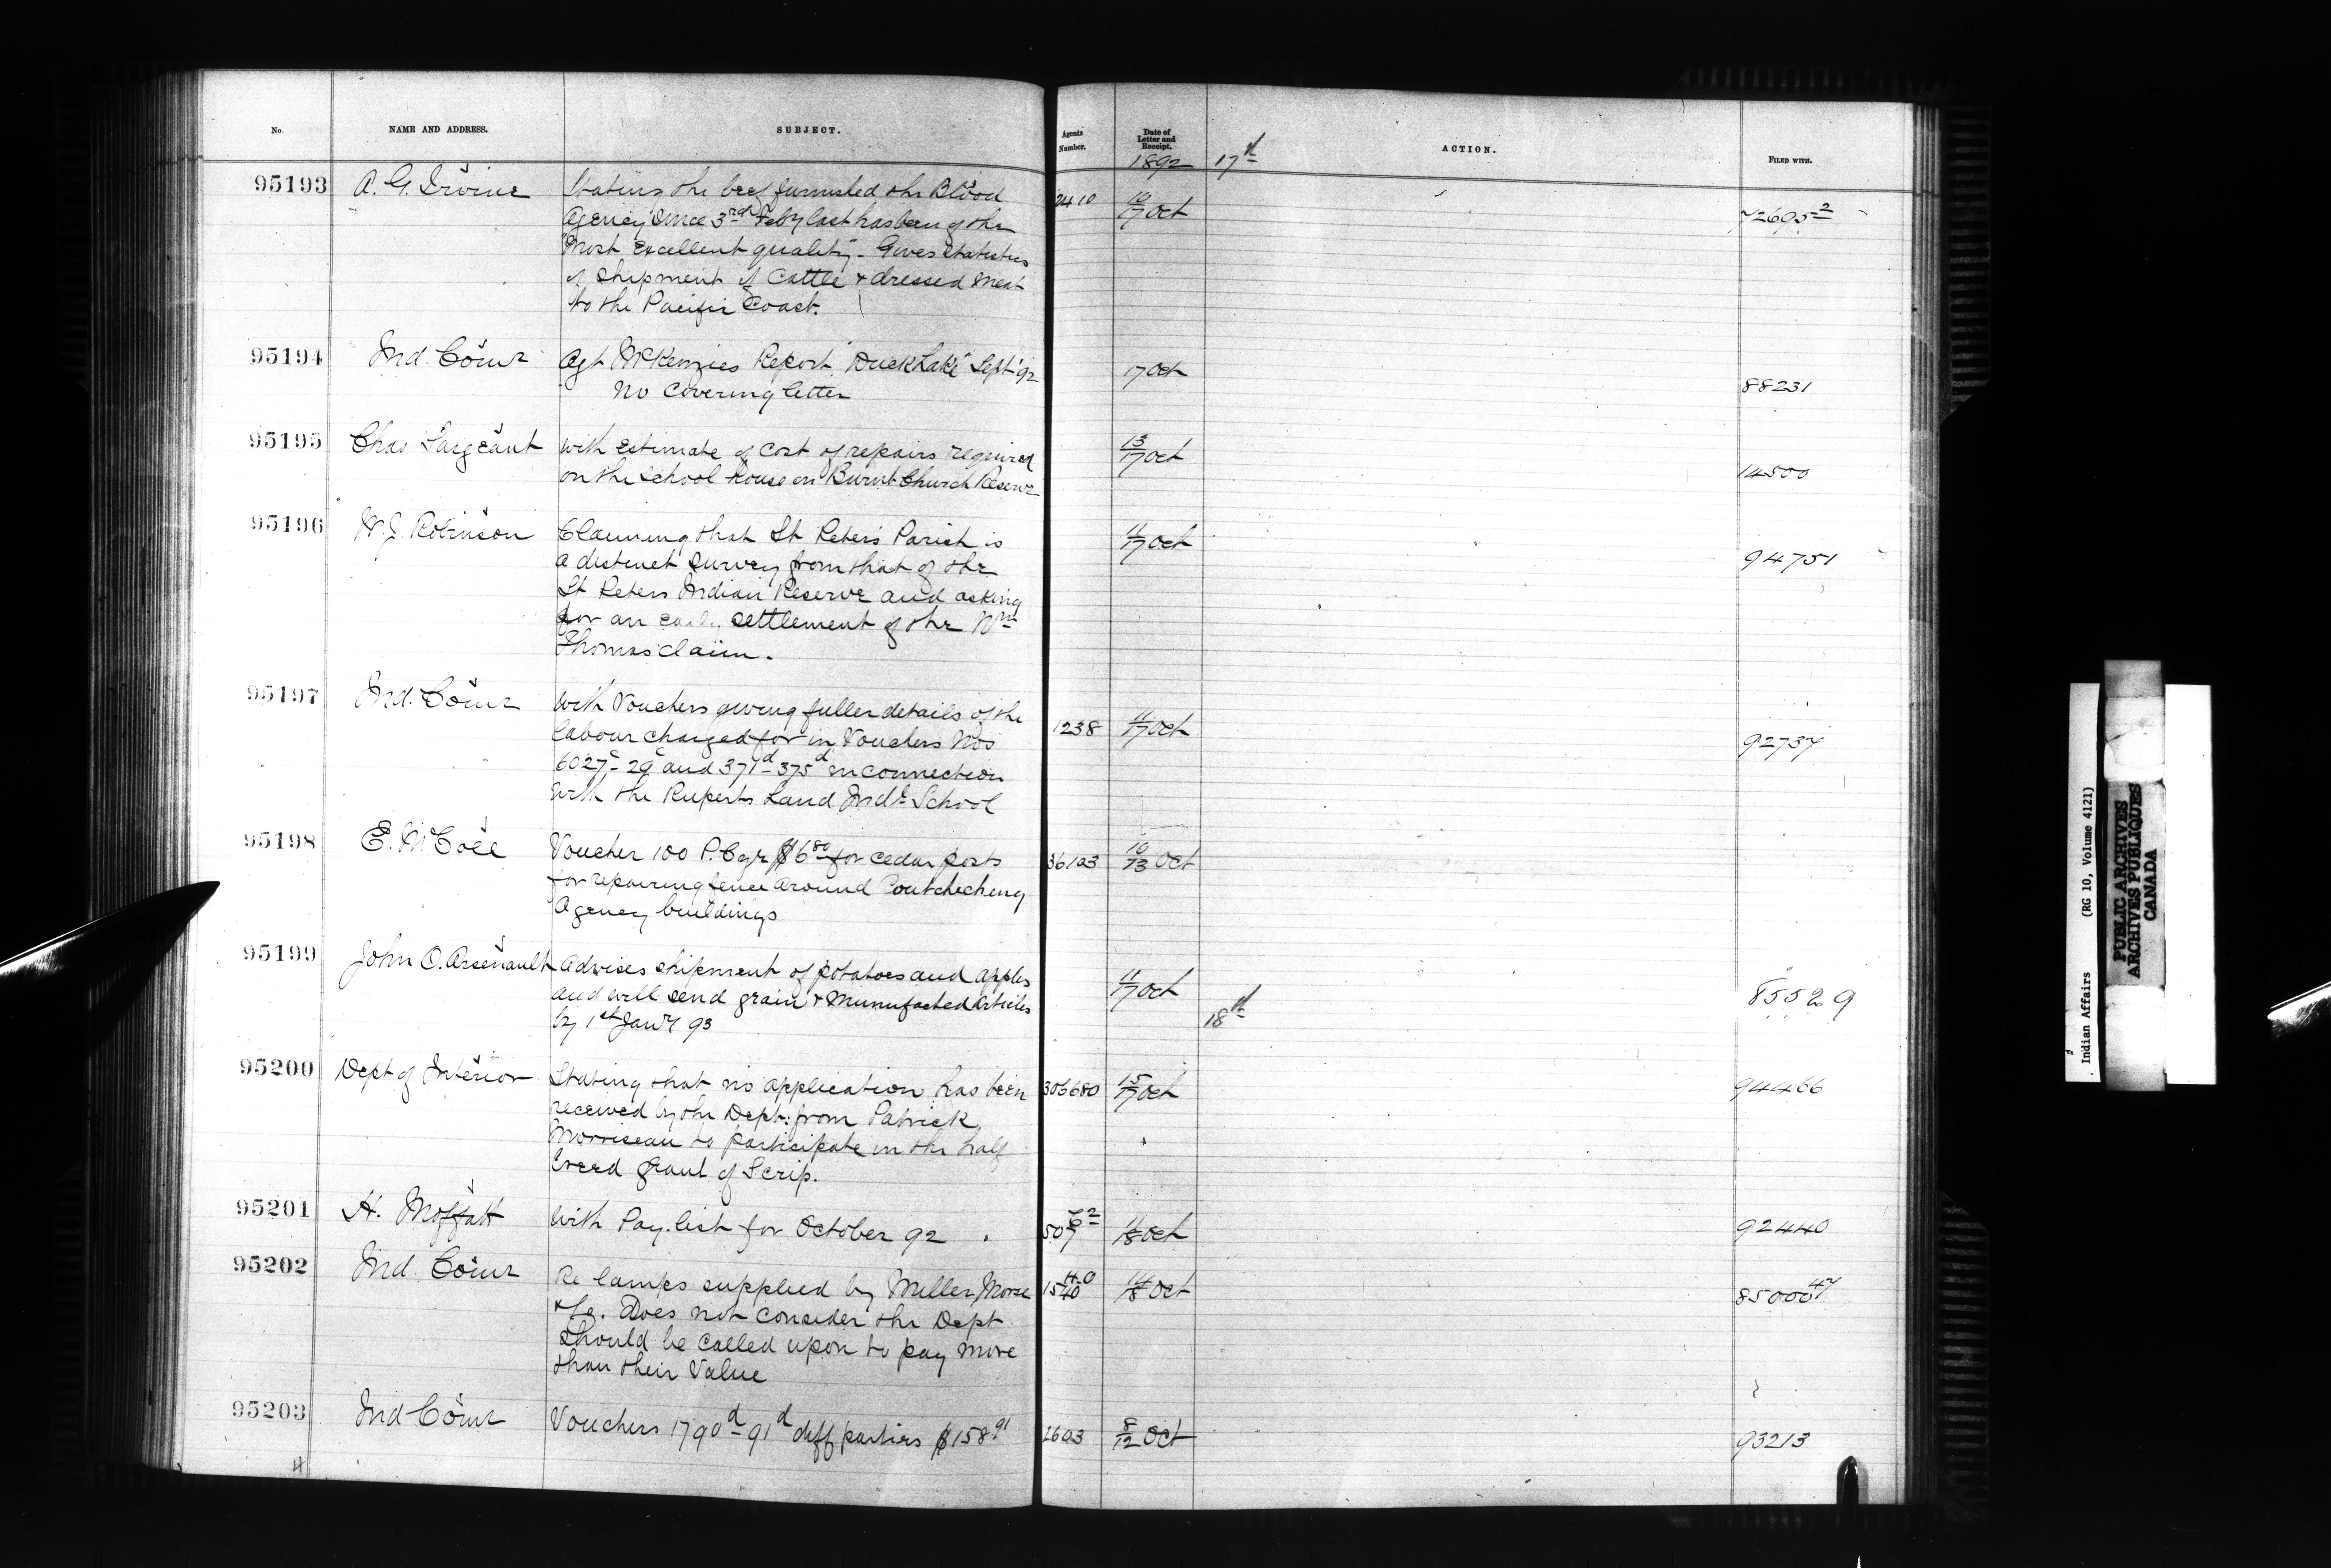 No. NAME AND ADDRESS. SUBJECT. Agents Number. Date of Letter and Receipt. ACTION. FILED WITH.
1892 17th
95193 A. G. Irvine Stating the beef furnished the Blood 2410 10/17 Oct 72695-2
Agency since 3rd Feby last has been of the
"Most Excellent quality" - Gives Statistics
of Shipment of Cattle & dressed meat
to the Pacific Coast.
95194 Ind. Comr Agt McKenzies Report "Duck Lake" Sept 92 17 Oct 88231
No Covering letter
95195 Chas Sargeant With Estimate of Cost of repairs required 13/17 Oct 14500
on the School House on Burnt Church Reserve
95196 W. J. Robinson Claiming that St Peters Parish is 11/17 Oct 94751
a distinct Survey from that of the
St Peters Indian Reserve and asking
for an early settlement of the Wm
Thomas claim.
95197 Ind. Comr With Vouchers giving fuller details of the 1238 11/17 Oct 92737
labour charged for in Vouchers Nos
6027c - 29c and 371d - 375d in connection
with the Ruperts Land Indl School
95198 E. McColl Voucher 100 P. Cyr $6 80 for cedar posts 36103 10/13 Oct
for repairing fence around Coutcheching
Agency buildings
95199 John O. Arsenault Advises shipment of potatoes and apples 11/17 Oct 85529
and will send grain & Munufacted Articles
by 1st Jany 93
18th
95200 Dept of Interior Stating that no application has been 306680 15/17 Oct 94466
received by the Dept. from Patrick
Morriseau to participate in the half
breed grant of Scrip.
95201 H. Moffatt With Pay list for October 92 507 62 11/18 Oct 92440
95202 Ind. Comr Re lamps supplied by Miller Morse 1540 40 14/18 Oct 85000-47
& Co. Does not consider the Dept
should be called upon to pay more
than their Value
95203 Ind Comr Vouchers 1790d - 91d diff parties $158 91 1603 8/12 Oct 93213
Indian Affairs (RG 10, Volume 4121)
PUBLIC ARCHIVES
ARCHIVES PUBLIQUES
CANADA